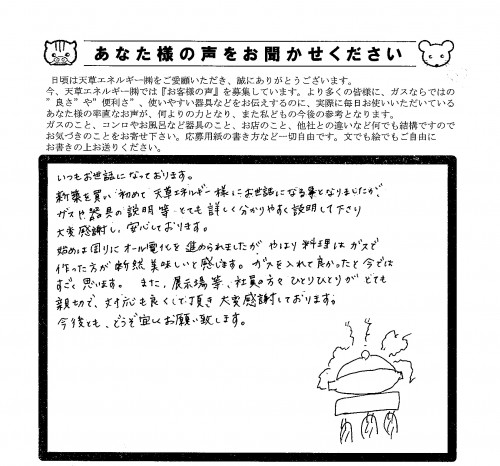 あなた様の声をお聞かせください
日頃は天草エネルギー㈱をご愛願いただき、誠にありがとうございます。
今、天草エネルギー㈱では『お客様の声』を募集しています。より多くの皆様に、ガスならではの
”良さ”や”便利さ”、使いやすい器具などをお伝えするのに、実際に毎日お使いいただいている
あなた様の率直なお声が、何よりの力となり、また私どもの今後の参考となります。
ガスのこと、コンロやお風呂など器具のこと、お店のこと、他社との違いなど何でも結構ですので
お気づきのことをお寄せ下さい。応募用紙の書き方など一切自由です。文でも絵でもご自由に
お書きの上お送りください。
いつもお世話になっております。
新築を買い初めて天草エネルギー様にお世話になる事となりましたが、
ガスや器具の説明等とても詳しく分かりやすく説明して下さり
大変感謝し、安心しております。
始めは周りにオール電化を進められましたがやはり料理はガスで
作った方が断然美味しいと感じます。ガスを入れて良かったと今では
すごく思います。また、展示場等、社員の方々ひとりひとりがとても
親切で、対応も良くして頂き大変感謝しております。
今後とも、どうぞ宜しくお願い致します。